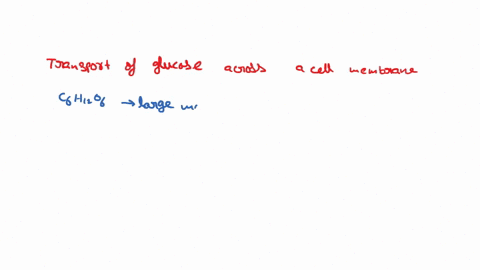 Transport of glucose across a cell membrane
C6H12O6 → large m